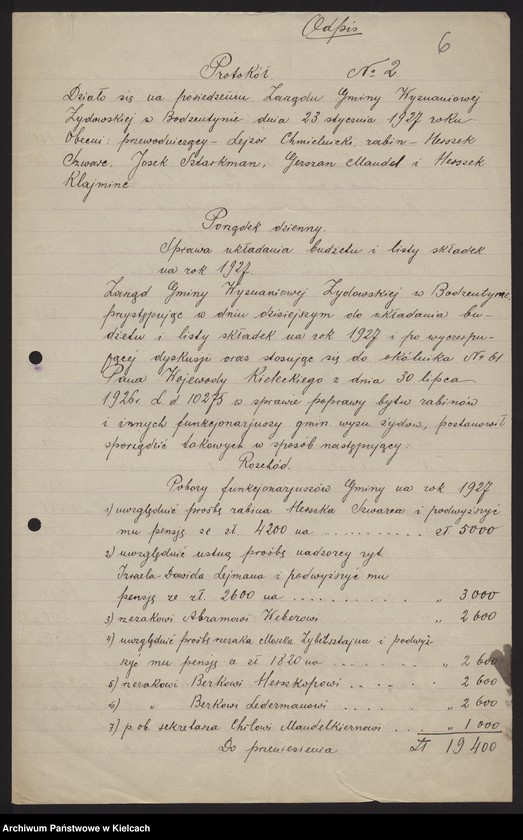 Odpis
6
Protokół № 2
Działo się na posiedzeniu Zarządu Gminy Wyznaniowej
Żydowskiej w Bodzentynie dnia 23 stycznia 1927 roku
Obecni: przewodniczący - Lejzor Chmielnicki, rabin - Herszek
Szwarc, Josek Sztarkman, Gerszan Mandel i Herszek
Klajminc
Porządek dzienny.
Sprawa układania budżetu i listy składek
na rok 1927
Zarząd Gminy Wyznaniowej Żydowskiej w Bodzentynie,
przystępując w dniu dzisiejszym do układania bu-
dżetu i listy składek na rok 1927 i po wyczerpu-
jącej dyskusji oraz stosując się do okólnika № 61
Pana Wojewody Kieleckiego z dnia 30 lipca
1926r. L. d 10275 w sprawie poprawy bytu rabinów
i innych funkcjonarjuszy gmin wyzn. żydow, postanowił
sporządzić takowych w sposób następujący:
Rozchód.
Pobory funkcjonarjuszów Gminy na rok 1927
1) uwzględnić prośbę rabina Herszka Szwarca i podwyższyć
mu pensję ze zł. 4200 na ........... zł 5000
2) uwzględnić ustną prośbę nadzorcy ryt.
Izraela-Dawida Lejmana i podwyższyć mu
pensję ze zł. 2600 na ........... " 3000
3) rzezakowi Abramowi Weberowi " 2600
4) uwzględnić prośbę rzezaka Moszla Zylbersztajna i podwyż-
szyć mu pensję ze zł 1820 na ....... " 2600
5) rzezakowi Berkowi Herszkopowi .... " 2600
6) " Berkowi Ledermanowi ... " 2600
7) p. ob. sekretarza Chilowi Mandelkiernowi ... " 1000
Do przeniesienia Zł 19400
Archiwum Państwowe w Kielcach